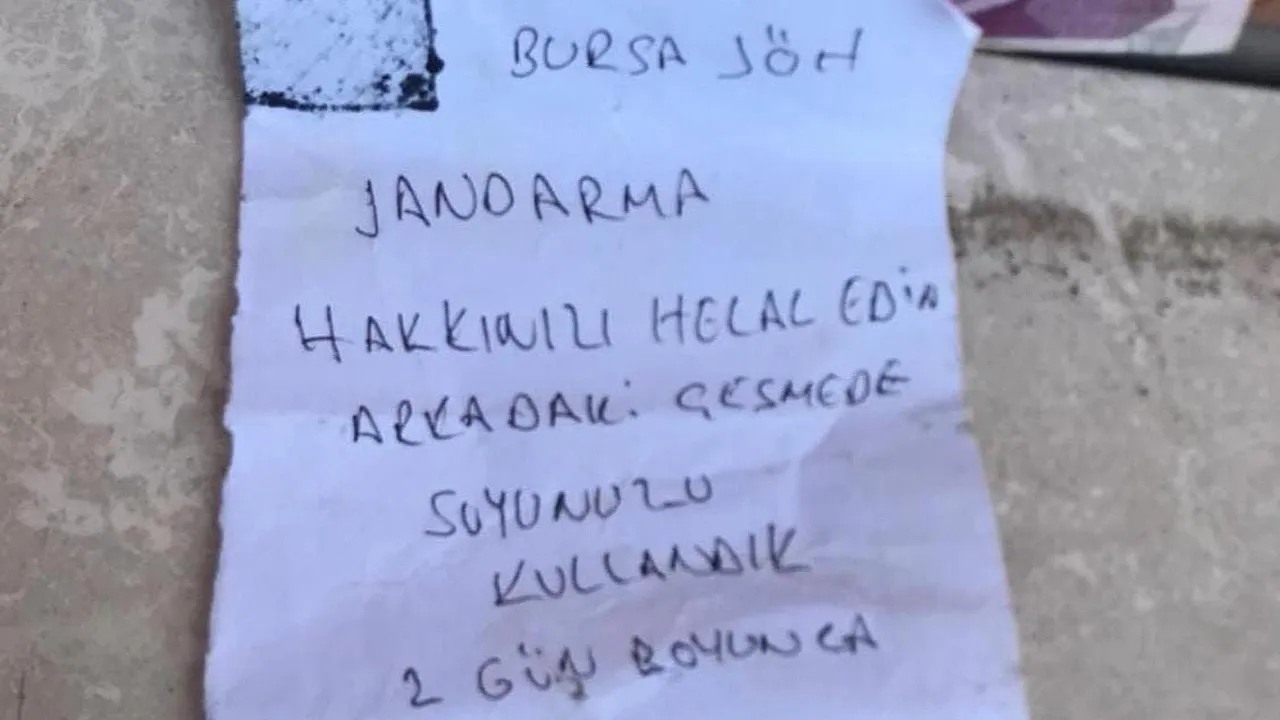 BURSA JÖH
JANDARMA
HAKKINIZI HELAL EDİN
ARKADAKİ ÇEŞMEDE
SUYUNUZU
KULLANDIK
2 GÜN BOYUNCA